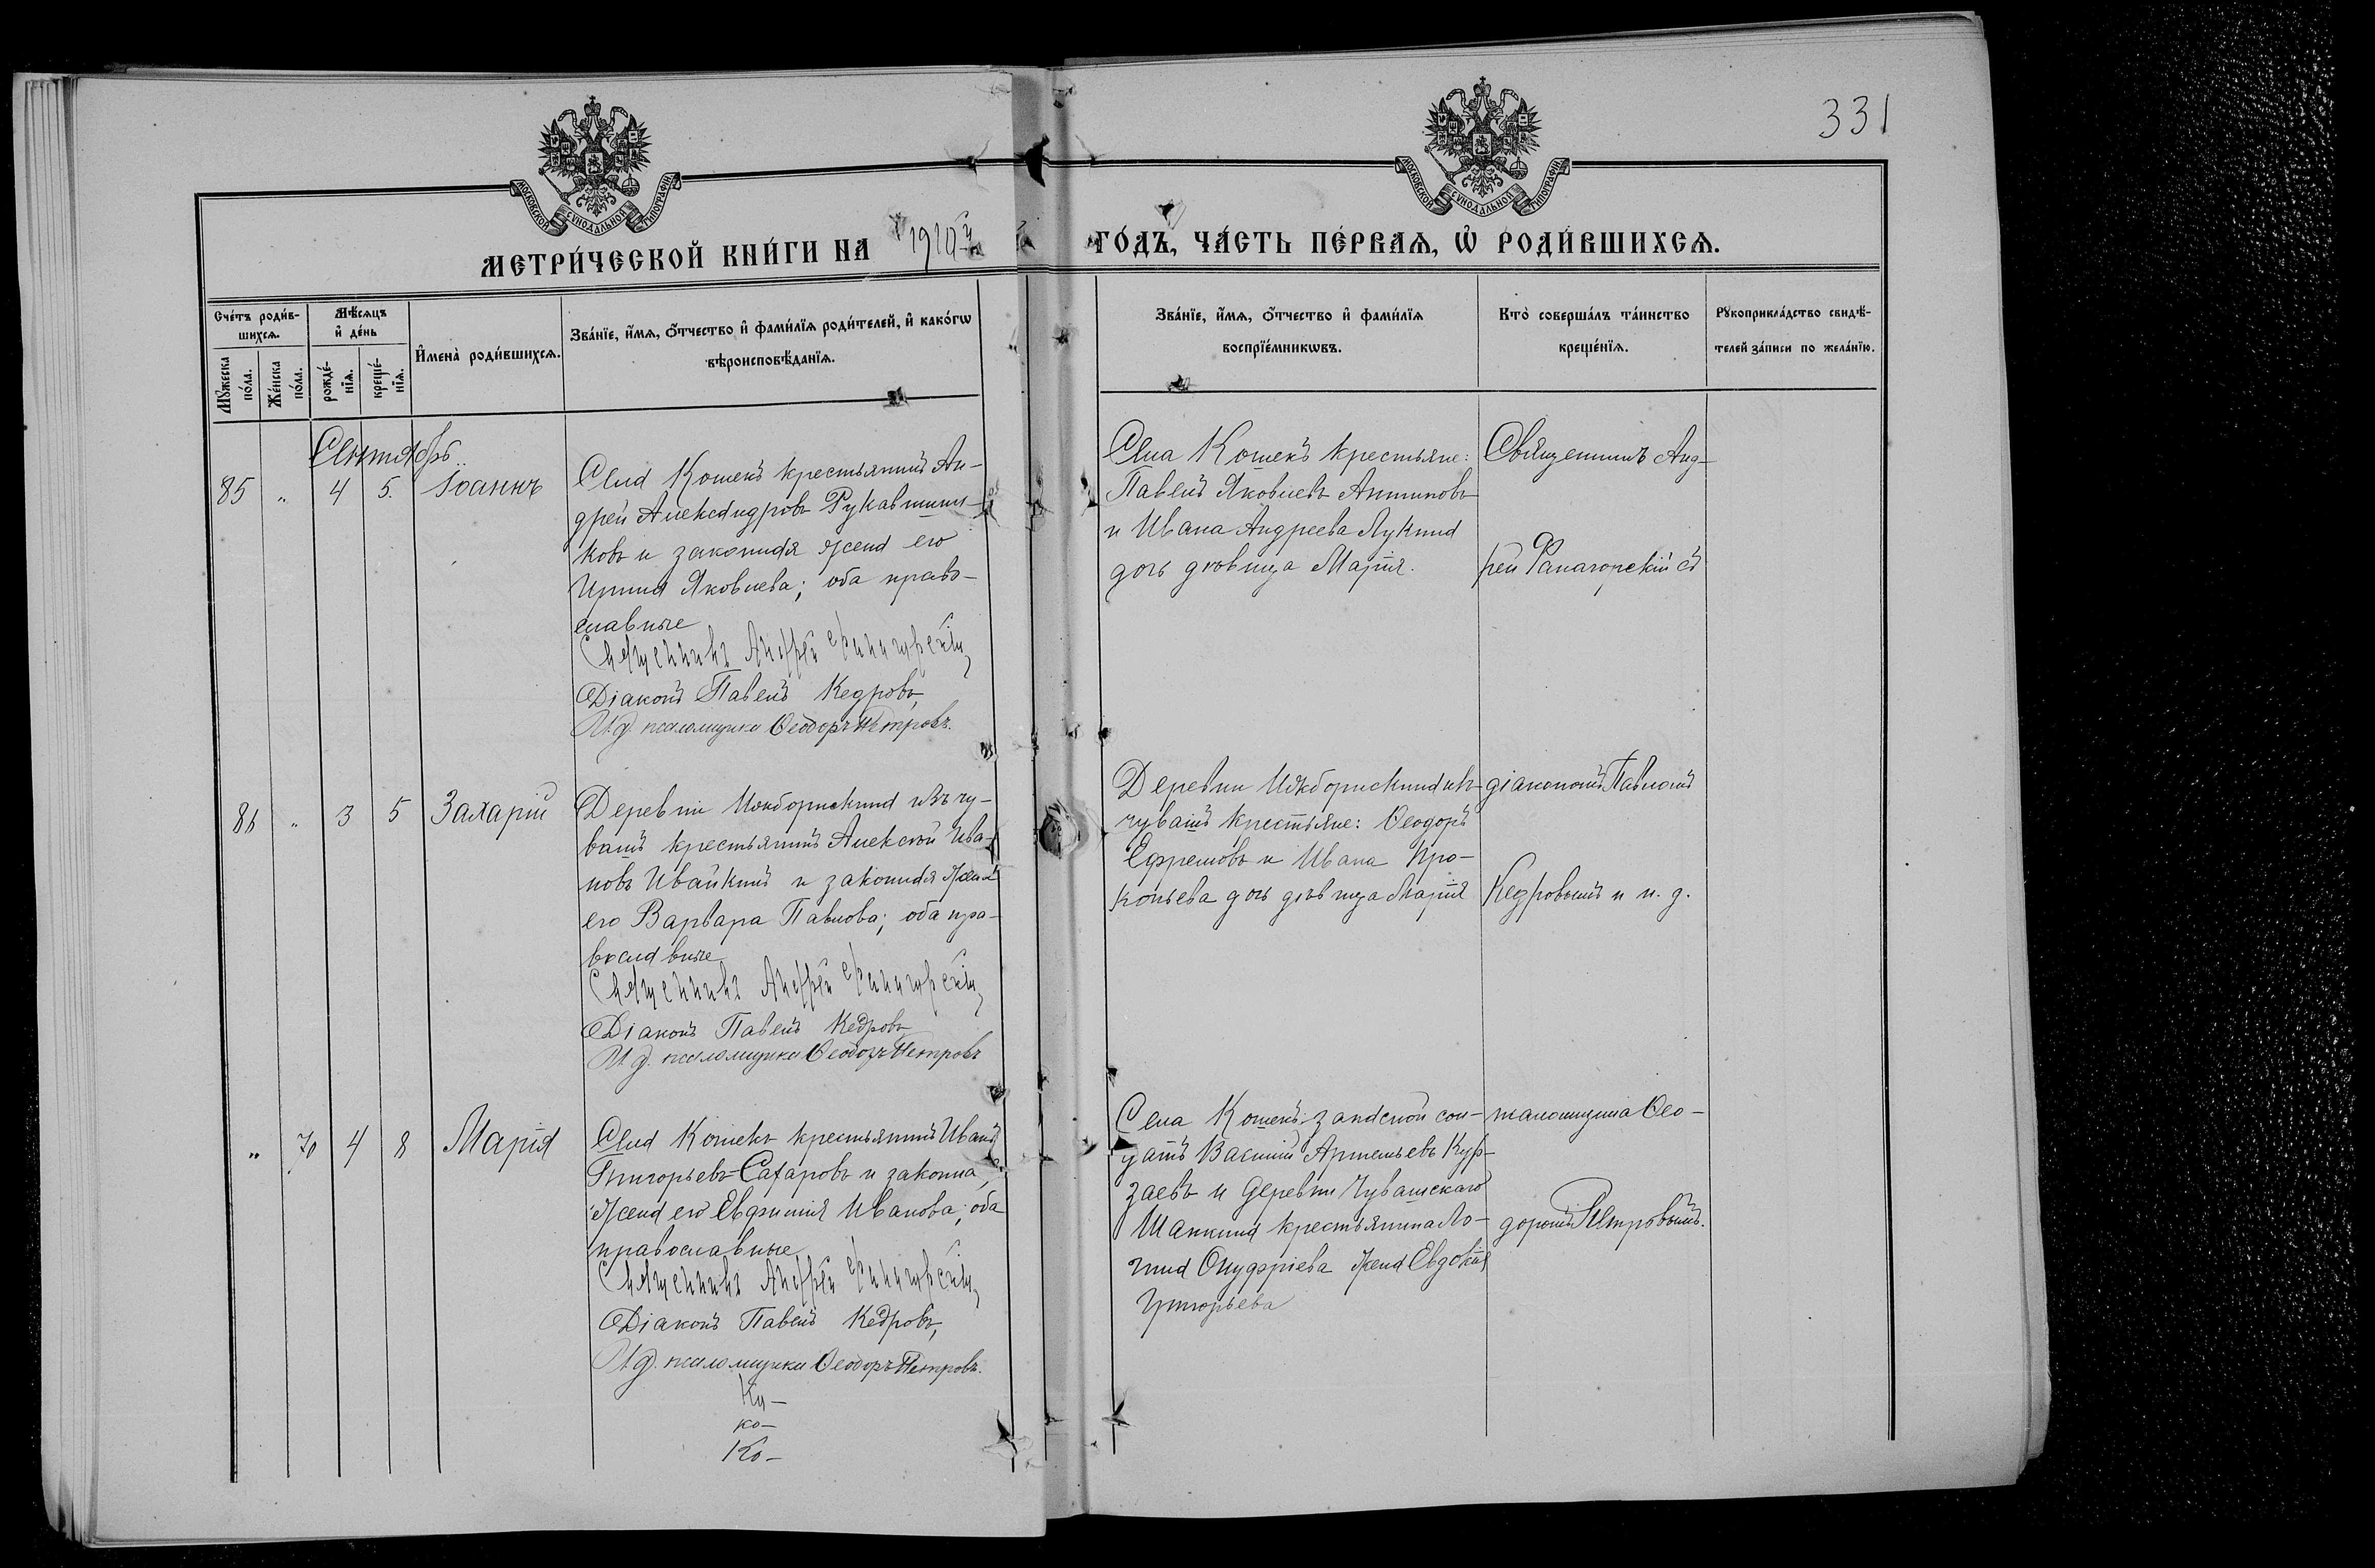 331
МОСКОВСКОЙ СѴНОДАЛЬНОЙ ТИПОГРАФІИ
МОСКОВСКОЙ СѴНОДАЛЬНОЙ ТИПОГРАФІИ
МЕТРИ́ЧЕСКОЙ КНИ́ГИ НА 1910й ГО́ДЪ, ЧА́СТЬ ПЕ́РВАѦ, Ѽ РОДИ́ВШИХСѦ.
Сче́тъ роди́в-
шихсѧ.
Мꙋ́жеска по́ла.
Же́нска по́ла.
Мѣ́сѧцъ
и҆ де́нь
рожде́-
нїѧ.
креще́-
нїѧ.
И҆мена̀ роди́вшихсѧ.
Зва́нїе, и҆́мѧ, о҆́тчество и҆ фами́лїѧ роди́телей, и҆ како́гѡ
вѣроисповѣ́данїѧ.
Зва́нїе, и҆́мѧ, о҆́тчество и҆ фами́лїѧ
воспрїе́мникѡвъ.
Кто̀ соверша́лъ та́инство
креще́нїѧ.
Рꙋкоприкла́дство свидѣ́-
телей за́писи по жела́нїю.
Сентябрь
85 „ 4 5. Іоаннъ
Села Кошекъ крестьянинъ Ан-
дрей Александровъ Рукавишни-
ковъ и законная жена его
Ирина Яковлева; оба право-
славные
Священникъ Андрей Фанагорскій,
Діаконъ Павелъ Кедровъ,
И.д. псаломщика Ѳеодоръ Петровъ.
Села Кошекъ крестьяне:
Павелъ Яковлевъ Антиповъ
и Ивана Андреева Лукина
дочь дѣвица Марія.
Священникъ Анд-
рей Фанагорскій съ
86 „ 3 5 Захарій
Деревни Ивкборискина изъ чу-
вашъ крестьянинъ Алексѣй Ива-
новъ Ивайкинъ и законная жена
его Варвара Павлова; оба пра-
вославные
Священникъ Андрей Фанагорскій,
Діаконъ Павелъ Кедровъ
И.д. псаломщика Ѳеодоръ Петровъ
чувашъ крестьяне: Ѳеодоръ
Ефремовъ и Ивана Про-
копьева дочь дѣвица Марія
діакономъ Павломъ
Кедровымъ и и. д.
„ 70 4 8 Марія
Села Кошекъ крестьянинъ Иванъ
Григорьевъ Сафаровъ и законная
жена его Евфимія Иванова; оба
православные
Священникъ Андрей Фанагорскій,
Діаконъ Павелъ Кедровъ,
И.д. псаломщика Ѳеодоръ Петровъ.
Ку-
ко-
Ко-
Села Кошекъ запасной сол-
датъ Василій Артемьевъ Кур-
заевъ и деревни Чувашскаго
Шапкина крестьянина Ло-
гина Онуфріева жена Евдокія
Григорьева
псаломщика Ѳео-
доромъ Петровымъ.